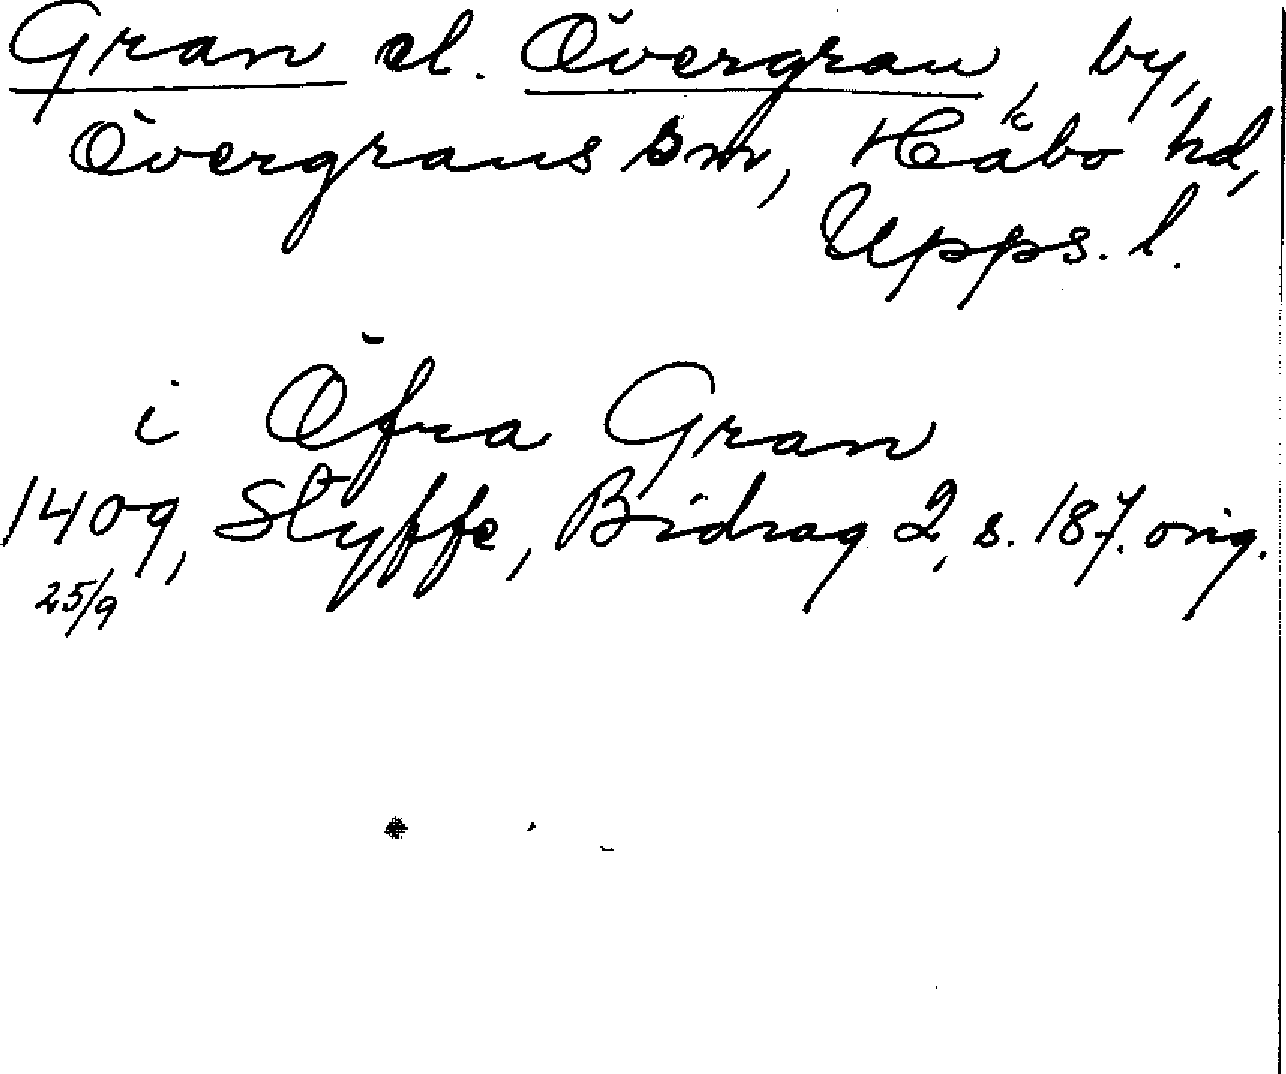 Gran el. Övergran, by,
Övergrans sm, Håbo hd,
Upps. l.
i Öfra Gran
1409, Styffe, Bidrag 2, s. 187. orig.
25/9